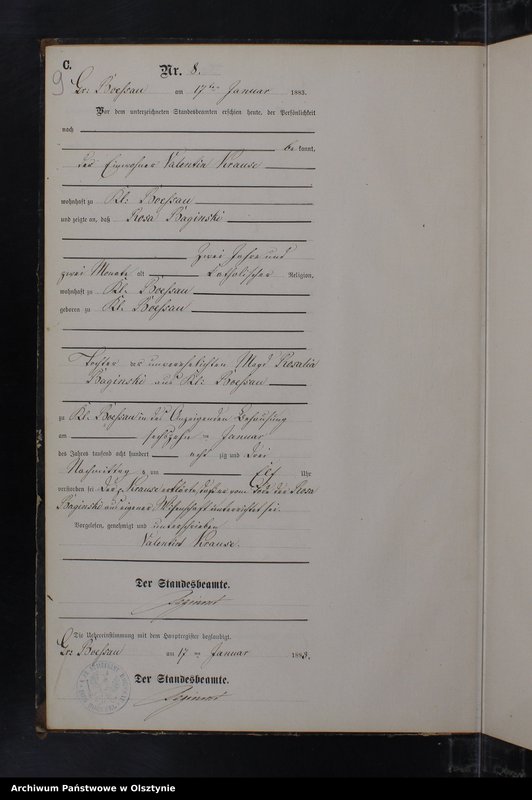 C.
9
Nr. 8.
Gr: Boessau am 17ten Januar 1883.
Vor dem unterzeichneten Standesbeamten erschien heute, der Persönlichkeit
nach
be kannt,
der Einwohner Valentin Krause
wohnhaft zu Kl: Boessau
und zeigte an, daß Rosa Baginski
zwei Jahre und
zwei Monate alt Catholischer Religion,
wohnhaft zu Kl: Boessau
geboren zu Kl: Boessau
Tochter der unverehelichten Magd Rosalia
Baginski aus Kl: Boessau
zu Kl: Boessau in des Anzeigenden Behausung
am sechszehn ten Januar
des Jahres tausend acht hundert acht zig und drei
Nachmittag s um elf Uhr
verstorben sei. Der p. Krause erklärte, daß er vom Tode der Rosa
Baginski aus eigener Wissenschaft unterrichtet sei.
Vorgelesen, genehmigt und unterschrieben
Valentin Krause.
Der Standesbeamte.
Die Uebereinstimmung mit dem Hauptregister beglaubigt.
Gr: Boessau am 17 ten Januar 1883.
Der Standesbeamte.
Archiwum Państwowe w Olsztynie